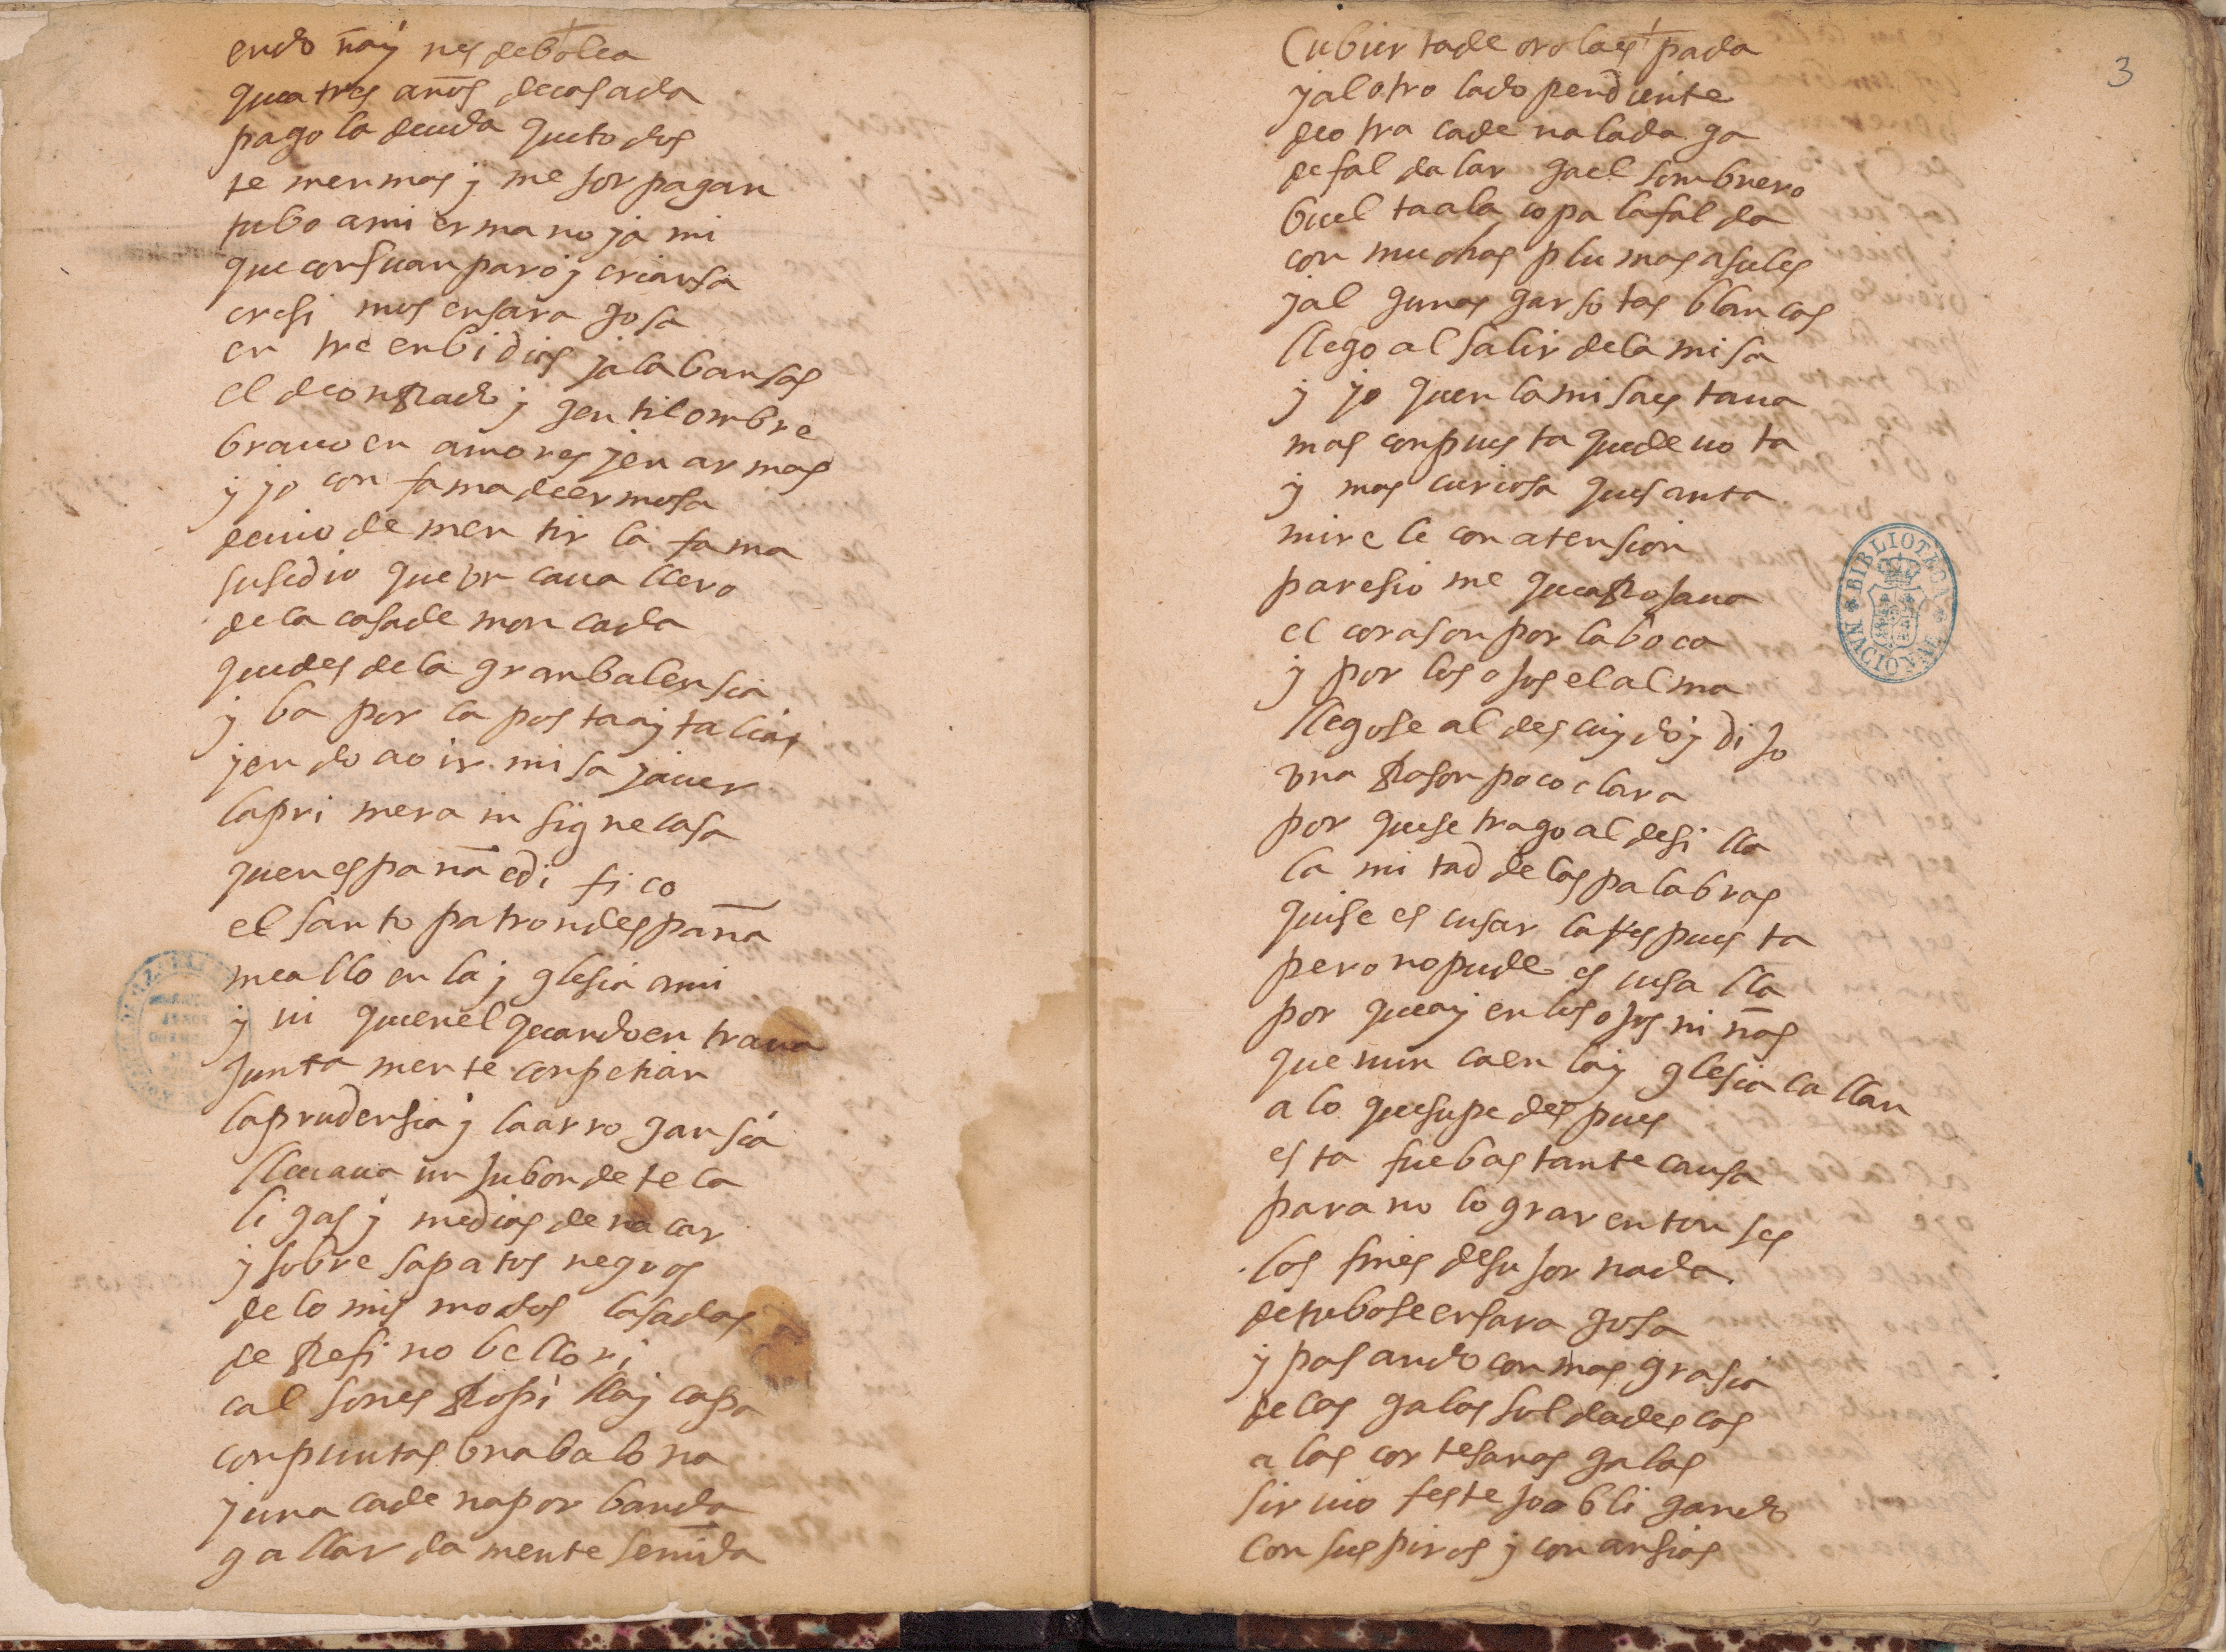 endo nãy nes debolea
quea tres anõs decasada
pago la deuda queto dos
te menmos y me jor pagan
tubo ami ermano ja mi
que consuanparo y criansa
cresi mos ensara gosa
en tre enbidias jalabansas
el deonRado y gen tilombre
brauo en amores jen armas
y jo con fama deermosa
deuio de men tir la fama
susedio que vn caua llero
de la casade mon cada
quedes dela granbalensia
y ba por la pos taaytalia
jen do ao ir misa jauer
lapri mera in signe casa
quenespanã edi fi co
el santo patrondespanã
meallo en la y glesia ami
y vi quenel quandoen traua
junta mente conpetian
laprudensia y laarro gansia
lleuaua un jubon de te la
li gas y medias de na car
y sobre sapatos negros
de lo mis modos lasadas
de Refi no bellori
cal sones Ropi lla y capa
conpuntas vnabalona
juna cade napor banda
gallar da mente senida
Cubier tade oro laes pada
jal otro lado pendiente
deo tra cade nalada ga
defal da lar gael sombrero
buel taala copa lafal da
con muchas plu mas asules
jal gunas garso tas blancas
llego al salir dela misa
y jo quen lamisaes taua
mas conpues ta quede uo ta
y mas curiosa quesanta
mire le con atension
paresio me queaRojaua
el corason por laboca
y por los ojos elalma
llegose al des cuydo y di jo
vna Rason poco clara
por quese trago al desi lla
la mi tad de las palabras
quise es cusar laRes pues ta
pero nopude es cusa lla
por queay en los ojos ni nãs
que nun caen lay glesia callan
a lo quesupe des pues
es ta fuebas tante causa
para no lo grar enton ses
los fines desu jor nada.
detubose ensara gosa
y pasando con mas grasia
de las galas sol dades cas
a las cor tesanas galas
sir uio feste joobli gando
con sus piros y con ansias
3
BIBLIOTECA NACIONAL